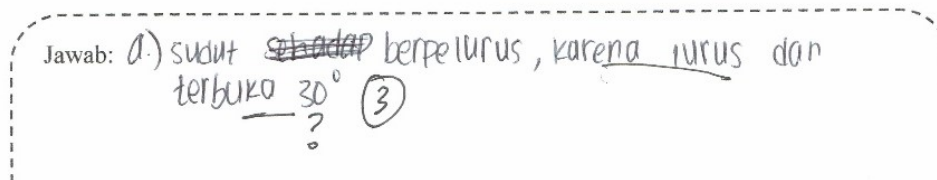 Jawab: a.) sudut berpelurus, karena lurus dan
terbuka 30° ③
?